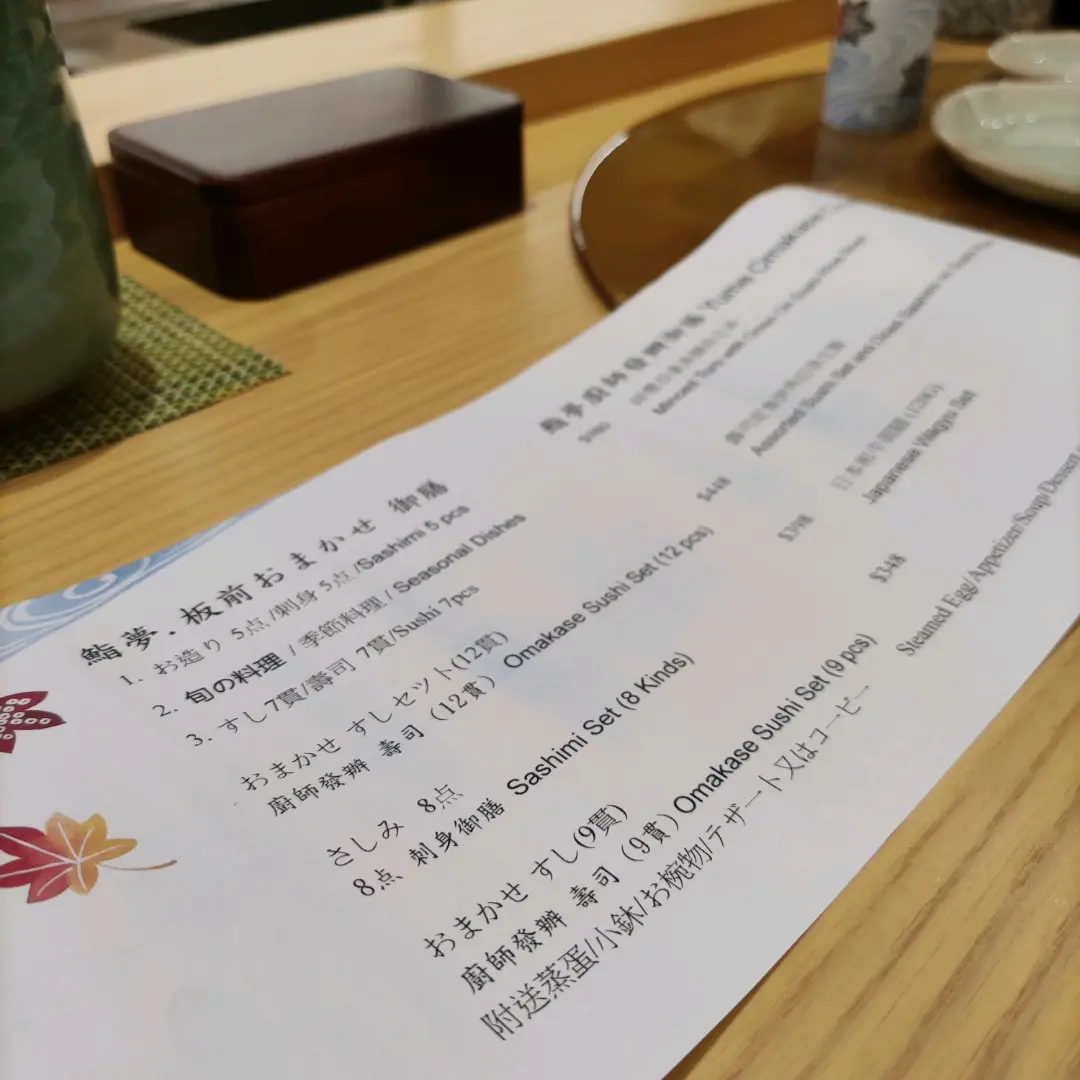 鮨夢・板前おまかせ 御膳
1. お造り 5点 /刺身 5点 /Sashimi 5 pcs
2. 旬の料理 / 季節料理 / Seasonal Dishes
3. すし7貫/壽司 7貫/Sushi 7pcs
おまかせ すしセット(12貫)
廚師發辦 壽司 (12貫) Omakase Sushi Set (12 pcs) $448
さしみ 8点
8点 刺身御膳 Sashimi Set (8 Kinds) $398
おまかせ すし(9貫)
廚師發辦 壽司 (9貫) Omakase Sushi Set (9 pcs) $348
附送蒸蛋/小鉢/お椀物/テザート又はコーピー
Steamed Egg/Appetizer/Soup/Dessert
鮨夢廚師發辦御膳 Yume Omakase
Assorted Sushi Set and
Japanese Wagyu Set